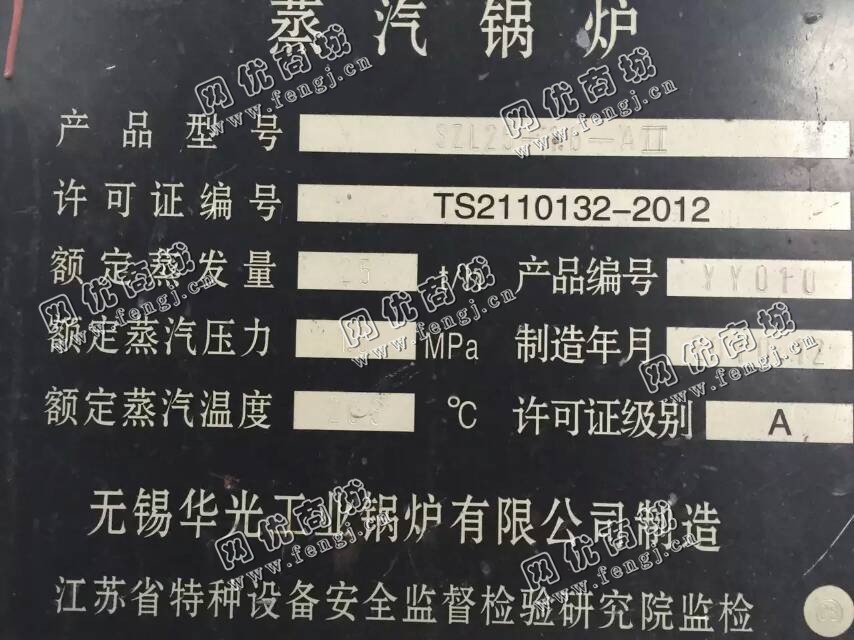 蒸汽锅炉
产品型号
许可证编号 TS2110132-2012
额定蒸发量 25 t/h 产品编号 YY010
额定蒸汽压力 MPa 制造年月
额定蒸汽温度 ℃ 许可证级别 A
无锡华光工业锅炉有限公司制造
江苏省特种设备安全监督检验研究院监检
网优商城
www.fengj.cn
网优商城
www.fengj.cn
网优商城
www.fengj.cn
网优商城
www.fengj.cn
网优商城
www.fengj.cn
网优商城
www.fengj.cn
网优商城
www.fengj.cn
网优商城
www.fengj.cn
网优商城
www.fengj.cn